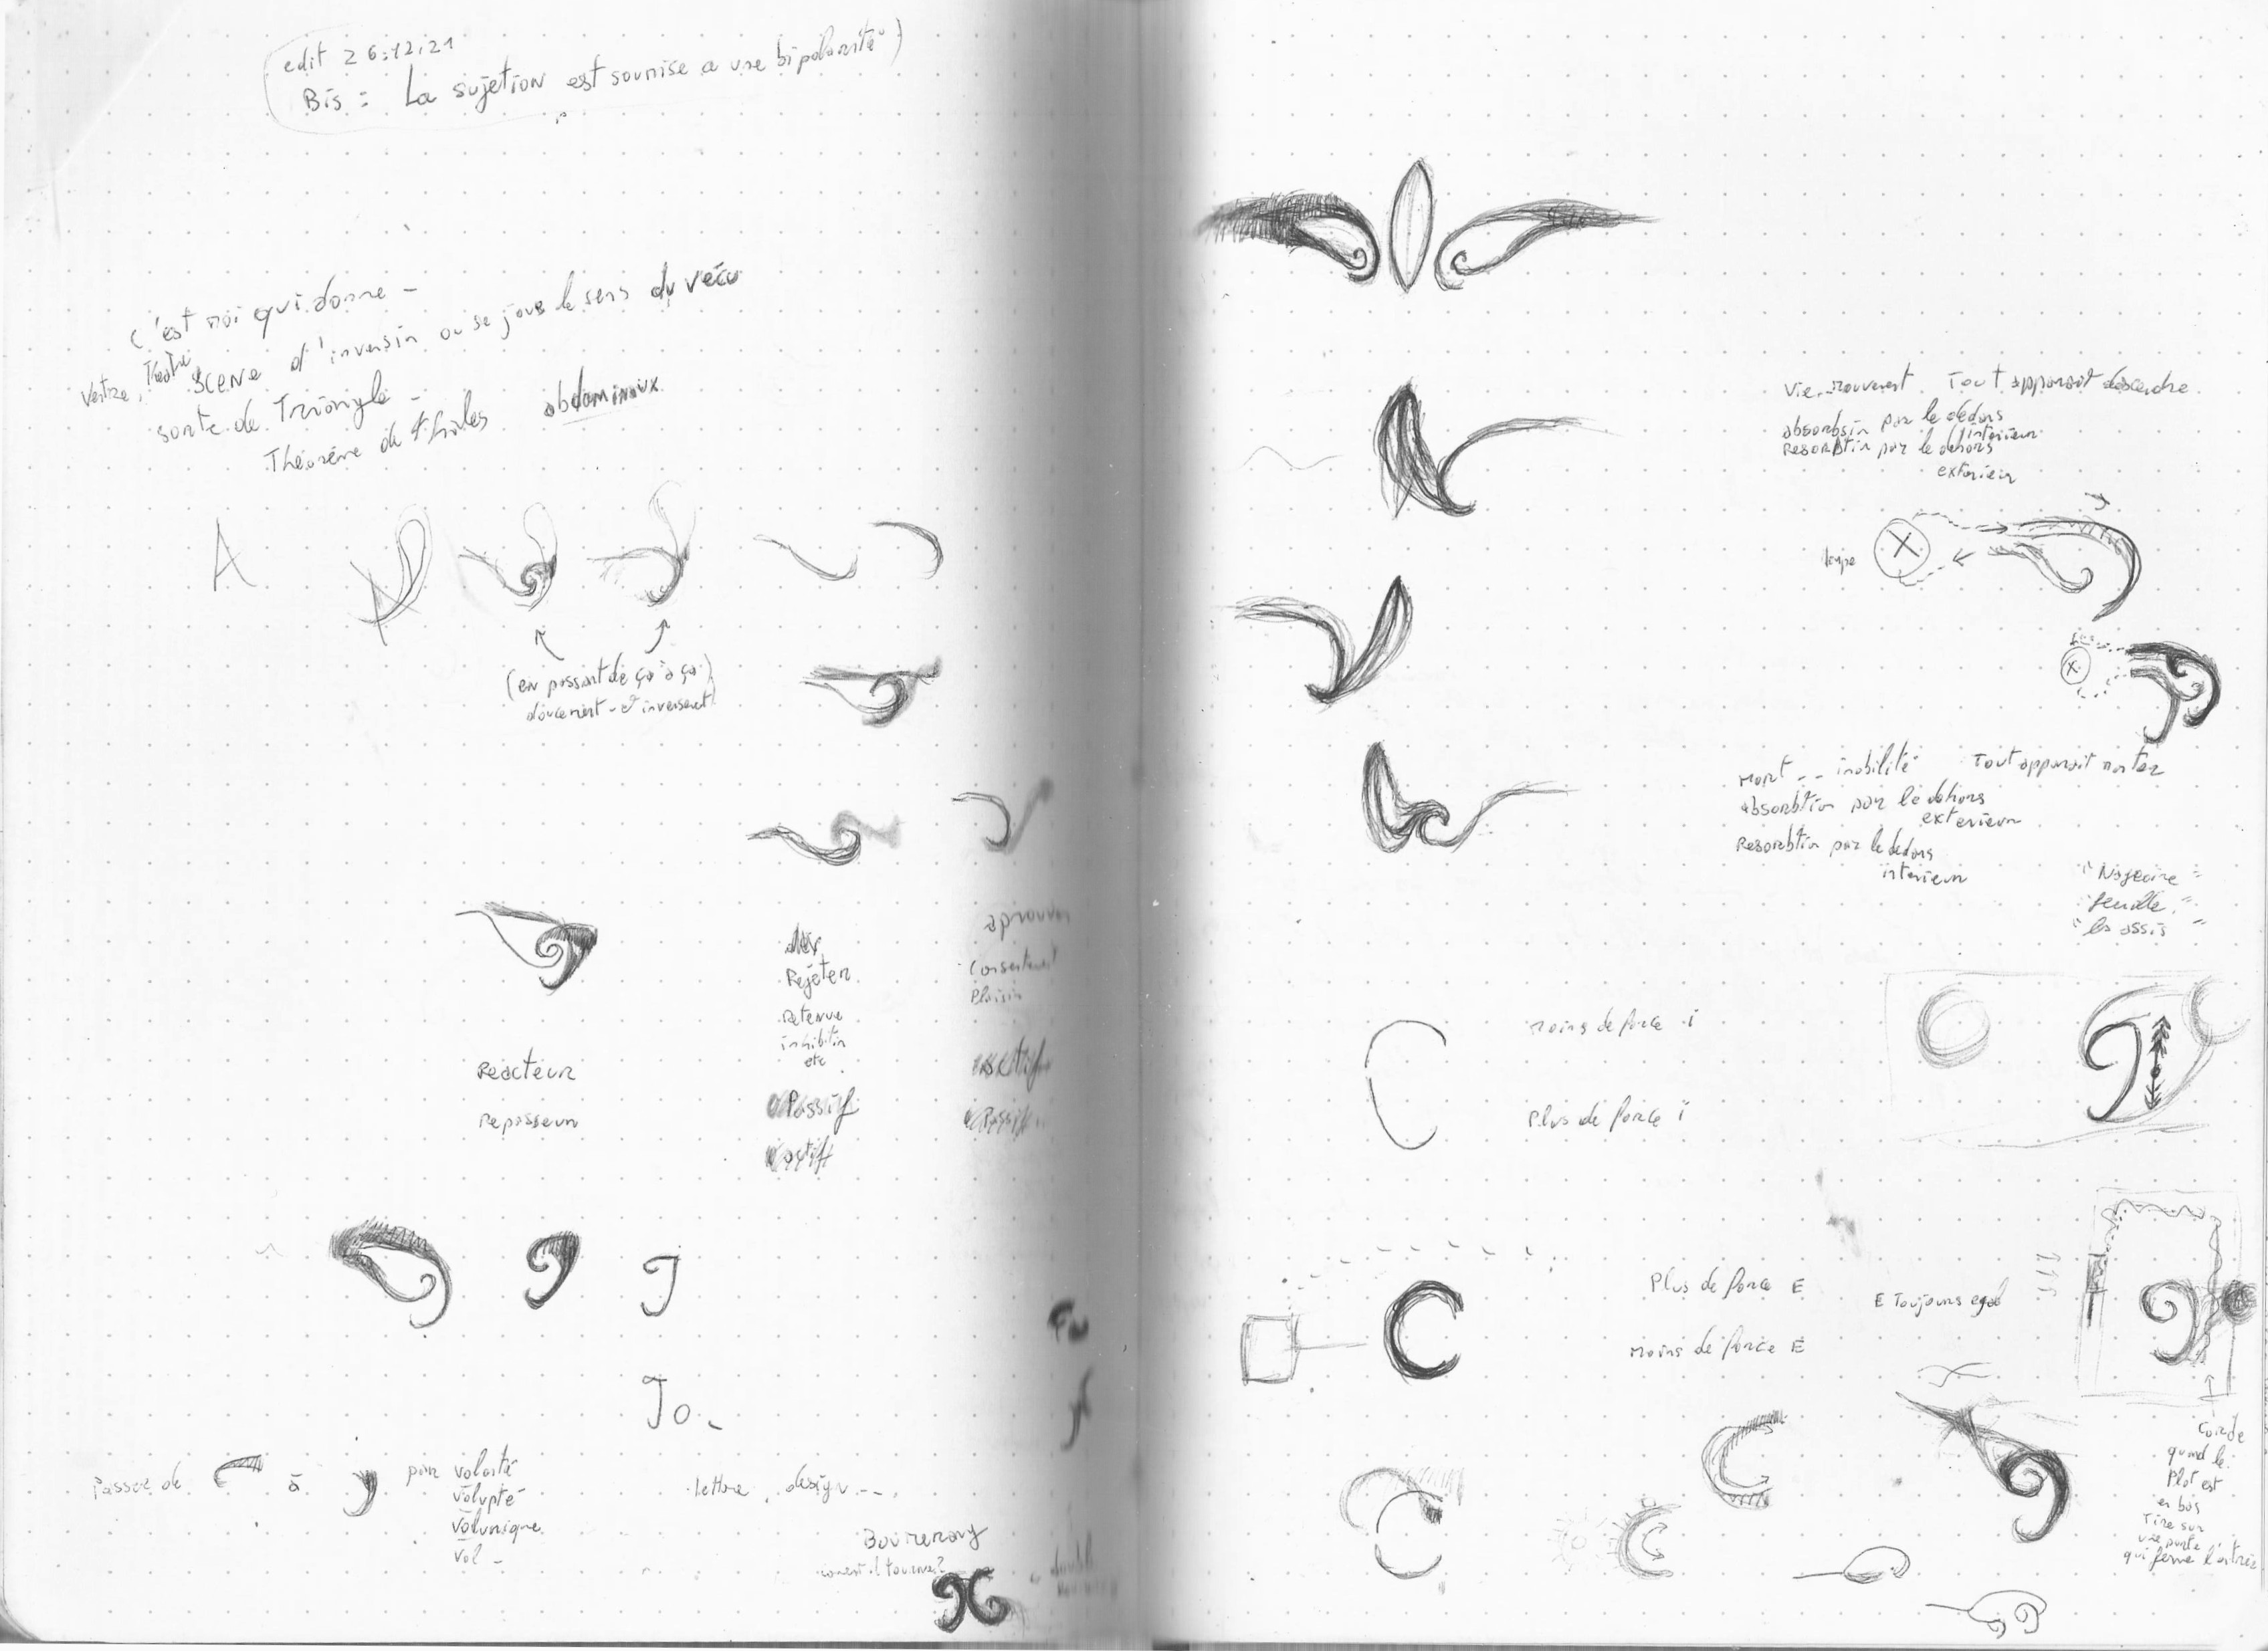 edit 26.12.21
Bis : La sujetion est soumise a une bipolarité
C'est moi qui donne -
Ventre, Théatre scene d'inversin ou se joue le sens du vécu
sorte de Triangle -
Théorème de thales abdominaux
A
(en passant de ça à ça)
doucement - et inversement
Rejeter
Retenue
inhibitin
etc
Passif
actif
aprouver
Consentement
Plaisir
Passif
Reacteur
Repasseur
J
Jo
Passer de à par volonté
volupté
volumique
vol -
lettre, design ---
Vie mouvement Tout apparait descendre
absorbsin par le dedans
interieur
Resorbtin par le dehors
exterieur
X
X
Mort -- imobilité Tout apparait monter
absorbtion par le dehors
exterieur
Resorbtion par le dedans
interieur
"Nageoire"
"feuille"
"les assis"
Moins de force i
Plus de force i
Plus de force E
Moins de force E
E Toujours egal
Corde
quand le
Plot est
en bas
Tire sur
une porte
qui ferme l'entrée